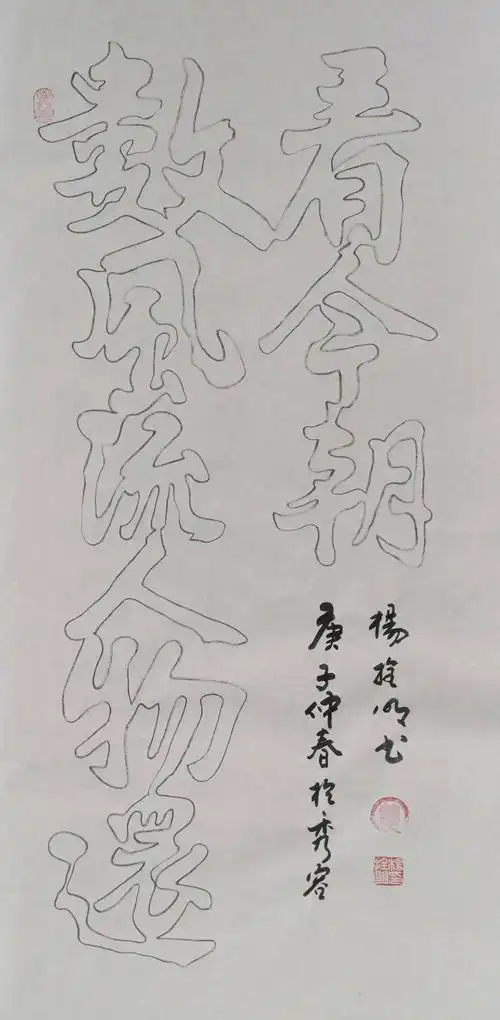 數風流人物還
看今朝
庚子仲春於秀容
楊拴明书